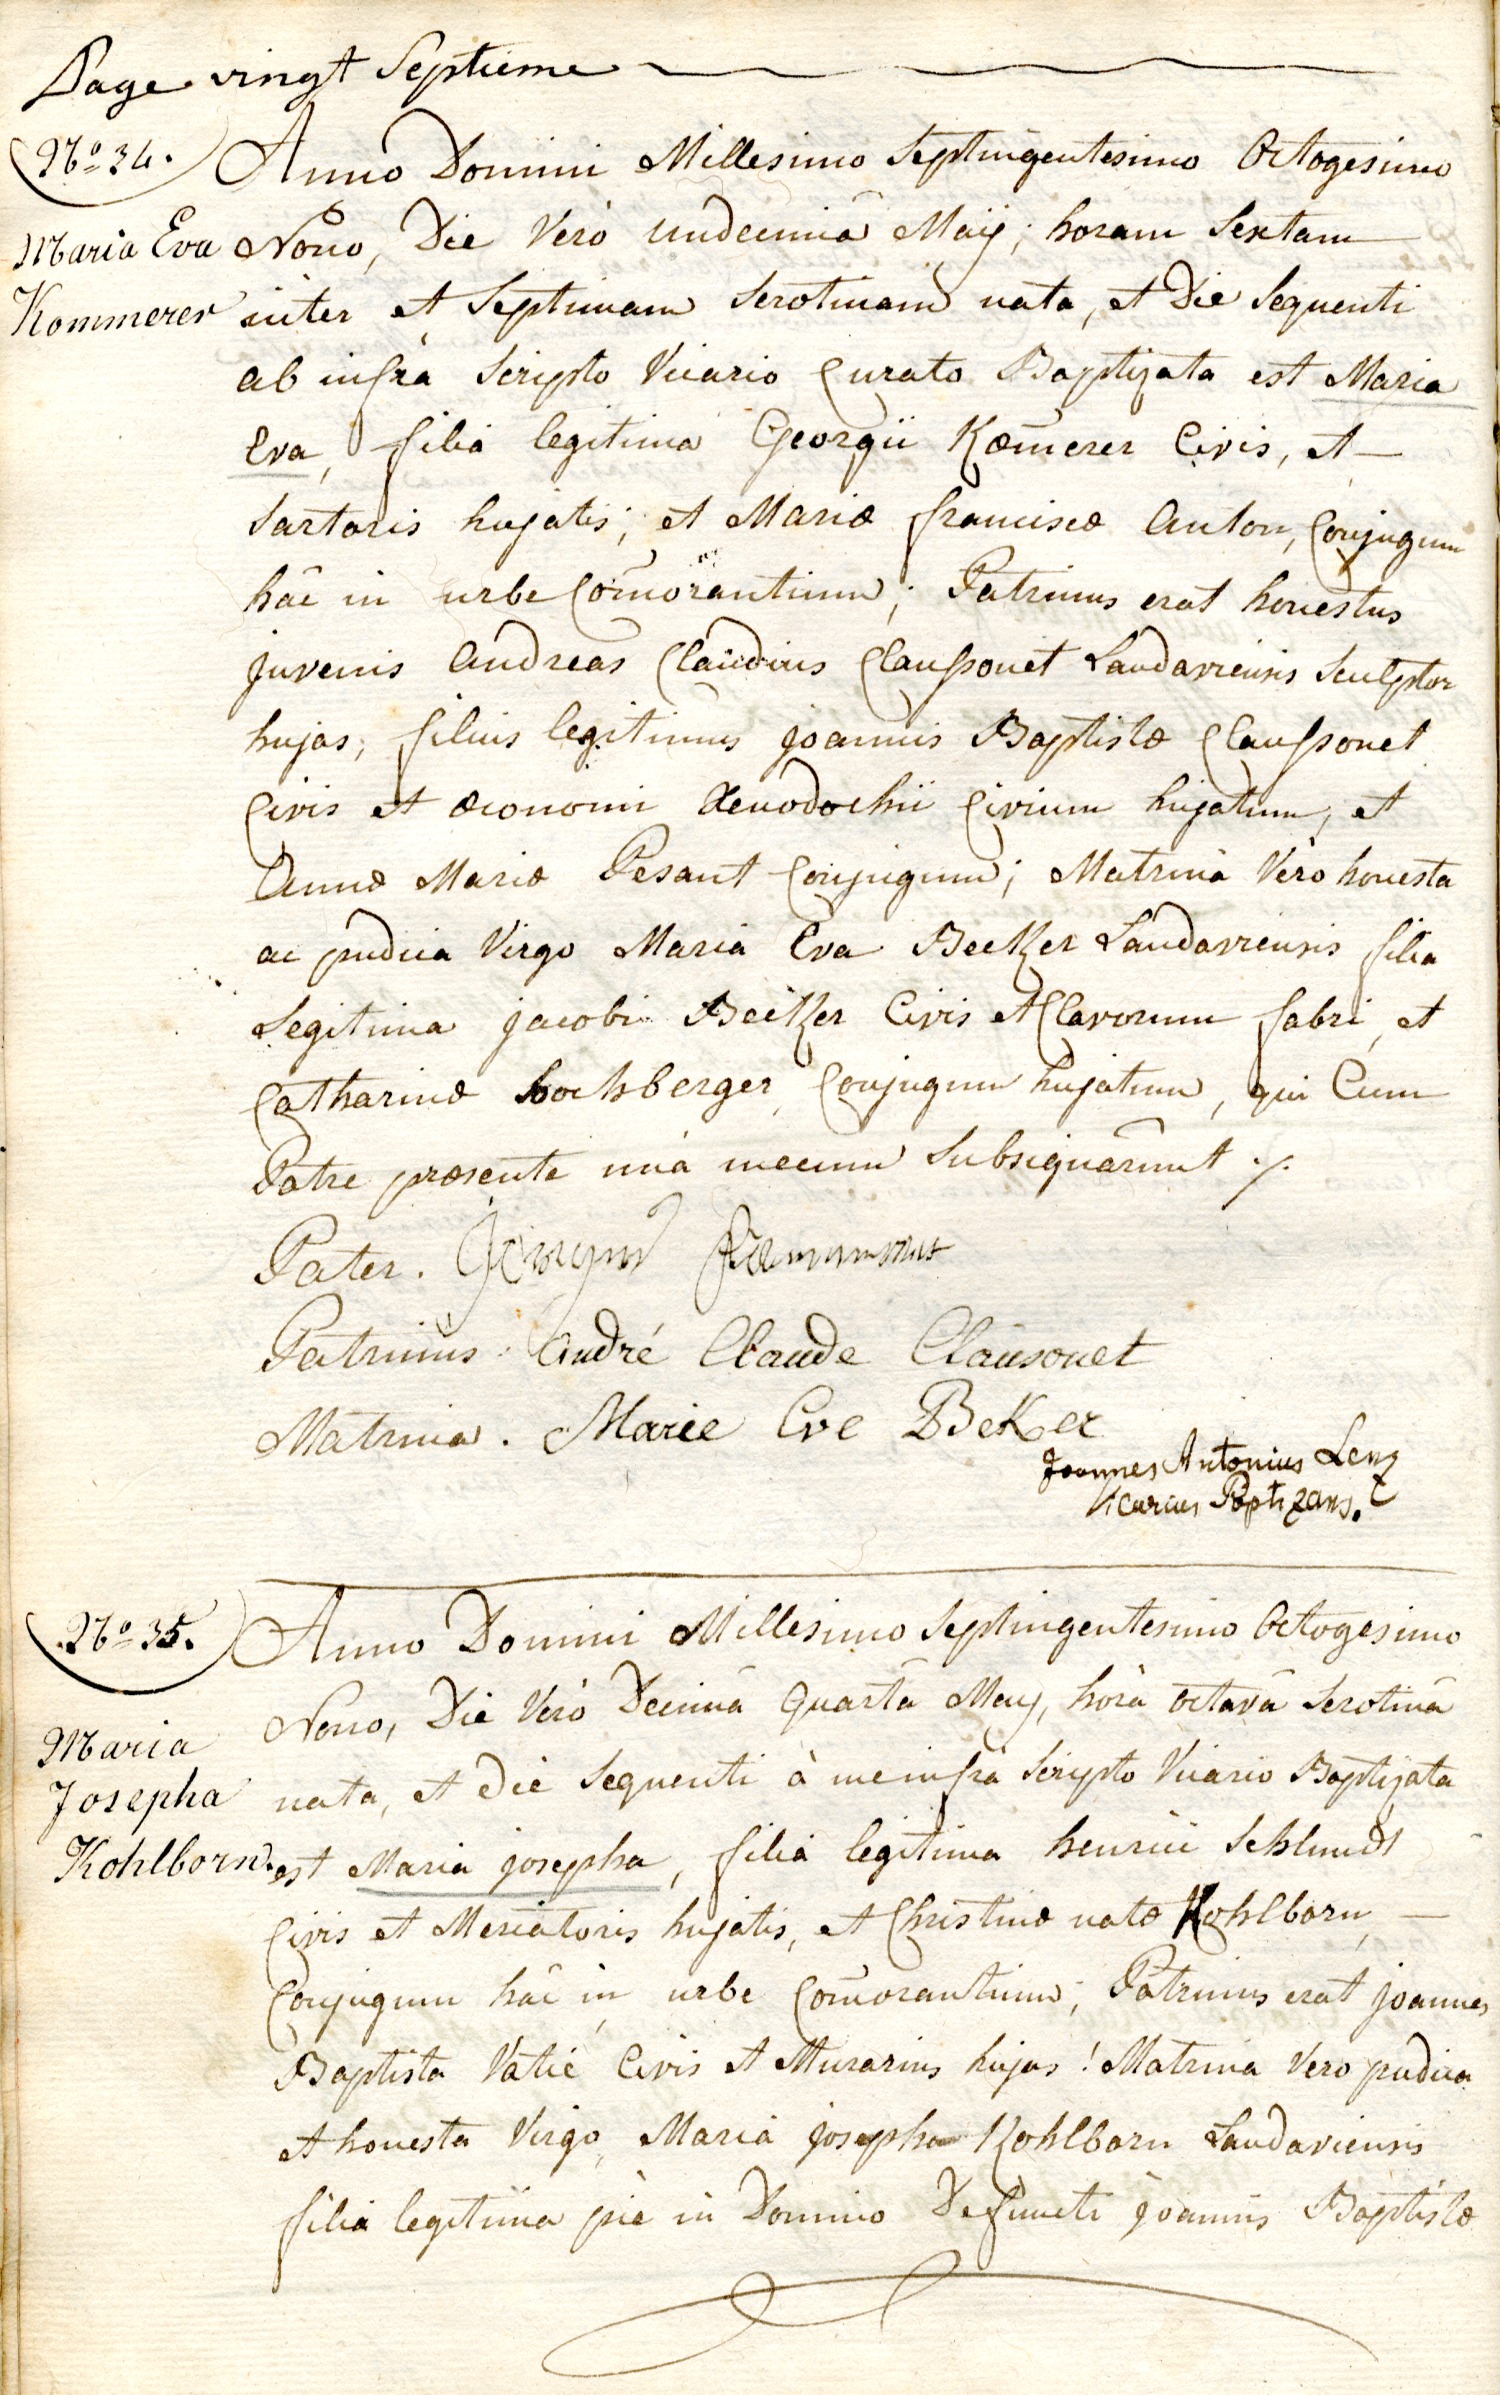 Page vingt Septieme
No 34. Anno Domini Millesimo Septingentesimo Octogesimo
Maria Eva Nono, Die Verò undecimâ Maÿ; horam Sextam
Kommerer inter et Septimam Serotinam nata, et Die Sequenti
ab infrà Scripto Vicario Curato Baptizata est Maria
Eva, filia legitima Georgii Kœm̄erer Civis, et
Sartoris hujatis; et Mariæ franciscæ Anton, Conjugum
hâc in urbe Com̄orantium; Patrinus erat honestus
juvenis Andreas Claudius Claussonet Landaviensis Sculptor
hujas, filius legitimus joannis Baptistæ Claussonet
Civis et œconomi Xenodochii Civium hujatum, et
Annæ Mariæ Pesant Conjugum; Matrina Vero honesta
ac pudica Virgo Maria Eva Becker Landaviensis filia
Legitima jacobi Becker Civis et Clavorum fabri, et
Catharinæ hochberger, Conjugum hujatum, qui Cum
Patre præsente unà mecum Subsignarunt ./.
Pater.
Patrinus. André Claude Clausonet
Matrina. Marie Eve BeKer
Joannes Antonius Lenz
Vicarius Baptizans.
No 35. Anno Domini Millesimo Septingentesimo Octogesimo
Nono, Die Verò Decimâ Quartâ Maÿ, horâ octavâ Serotinâ
Maria
nata, et die Sequenti à me infrà Scripto Vicario Baptizata
Josepha
Kohlborn. est Maria josepha, filia legitima henrici Schlundt
Civis et Mercatoris hujatis, et Christinæ natæ Kohlborn,
Conjugum hâc in urbe Com̄orantium; Patrinus erat joannes
Baptista Vatié Civis et Murarius hujas! Matrina Vero pudica
et honesta Virgo Maria josepha Kohlborn Landaviensis
filia legitima piè in Domino Defuncti joannis Baptistæ